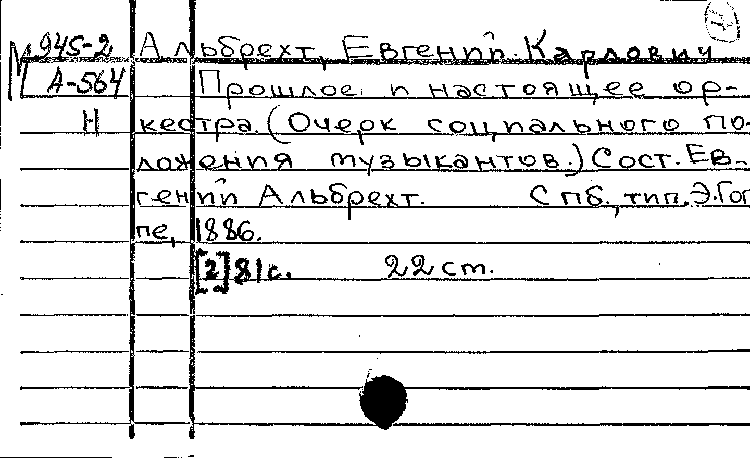 М 945-2 Альбрехт, Евгений Карлович
А-564 Прошлое и настоящее ор-
Н кестра. (Очерк социального по-
ложения музыкантов.) Сост. Ев-
гений Альбрехт. Спб., тип. Э. Гоп
пе, 1886.
[2] 81 с. 22 cm.